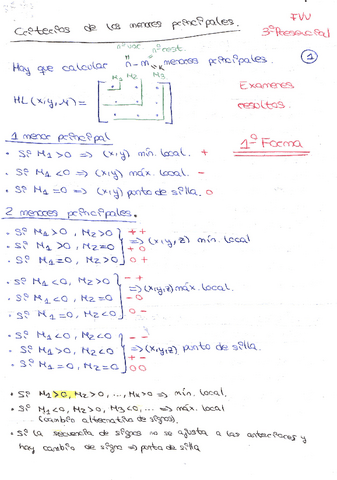 Criterios de los menores principales.
FVV
3º Presencial
nº var. nº rest.
Hay que calcular n - m menores principales.
1
M1 M2 M3
HL(x,y,z) =
Exámenes
resoltos.
1 menor principal
1º Forma
• Si M1 > 0 ⇒ (x,y) mín. local. +
• Si M1 < 0 ⇒ (x,y) máx. local. -
• Si M1 = 0 ⇒ (x,y) punto de silla. 0
2 menores principales.
• Si M1 > 0, M2 > 0 + +
• Si M1 > 0, M2 = 0 + 0 ⇒ (x,y,z) mín local
• Si M1 = 0, M2 > 0 0 +
• Si M1 < 0, M2 > 0 - +
• Si M1 < 0, M2 = 0 - 0 ⇒ (x,y,z) máx. local.
• Si M1 = 0, M2 < 0 0 -
• Si M1 < 0, M2 < 0 - -
• Si M1 > 0, M2 < 0 + - ⇒ (x,y,z) punto de silla.
• Si M1 = 0, M2 = 0 0 0
• Si M1 > 0, M2 > 0, ..., Mk > 0 ⇒ mín. local.
• Si M1 < 0, M2 > 0, M3 < 0, ... ⇒ máx. local
(cambio alternativo de signos).
• Si la secuencia de signos no se ajusta a las anteriores y
hay cambio de signo ⇒ punto de silla